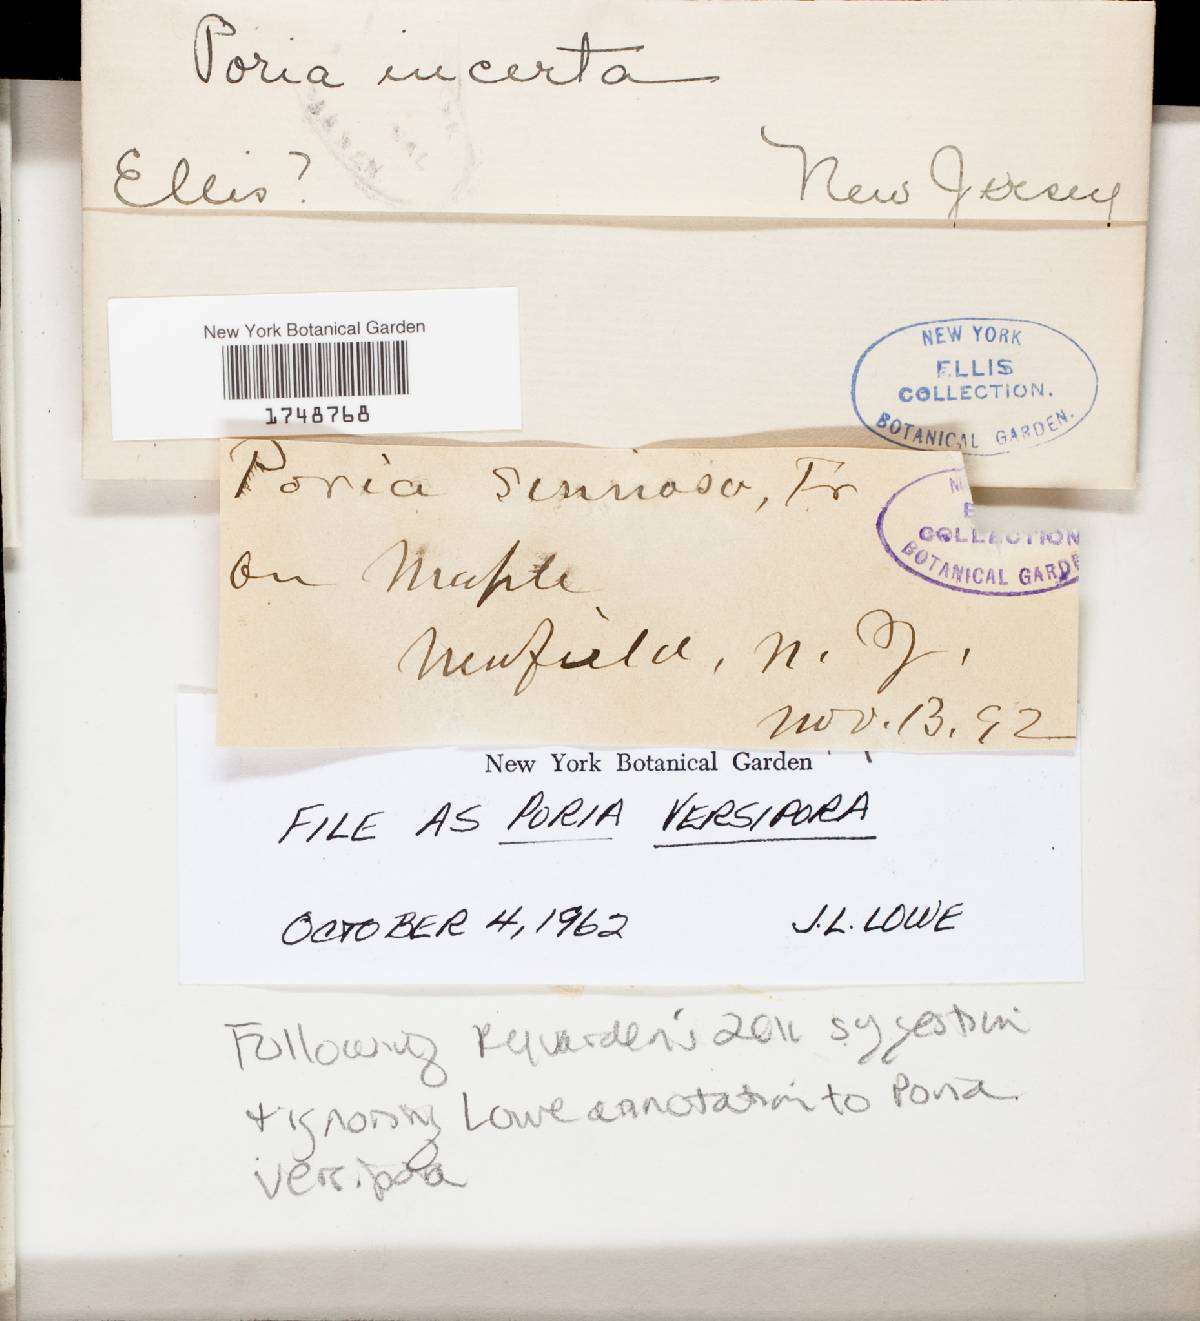 Poria incerta
Ellis? New Jersey
New York Botanical Garden
1748768
NEW YORK
ELLIS
COLLECTION.
BOTANICAL GARDEN.
Poria sinuosa, Fr
on Maple
Newfield, N. J.
Nov. 13. 92
COLLECTION
BOTANICAL GARDE
New York Botanical Garden
FILE AS PORIA VERSIPORA
OCTOBER 4, 1962 J.L. LOWE
Following Ryvarden's 2011 suggestion
+ ignoring Lowe annotation to Poria
versipora